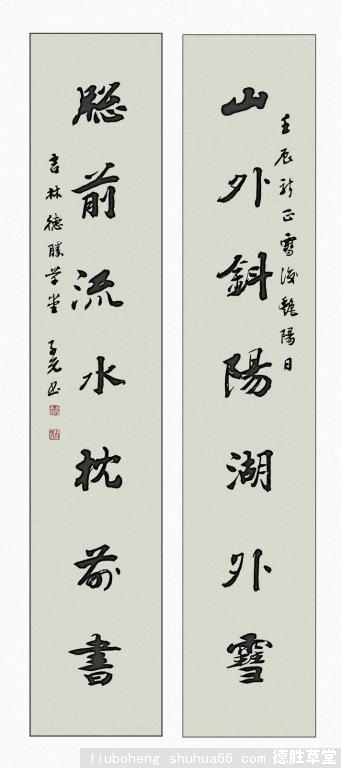 山外斜陽湖外雪
壬辰新正雪後艷陽日
牕前流水枕前書
吉林德勝草堂
liuboheng.shuhua66.com 德胜草堂